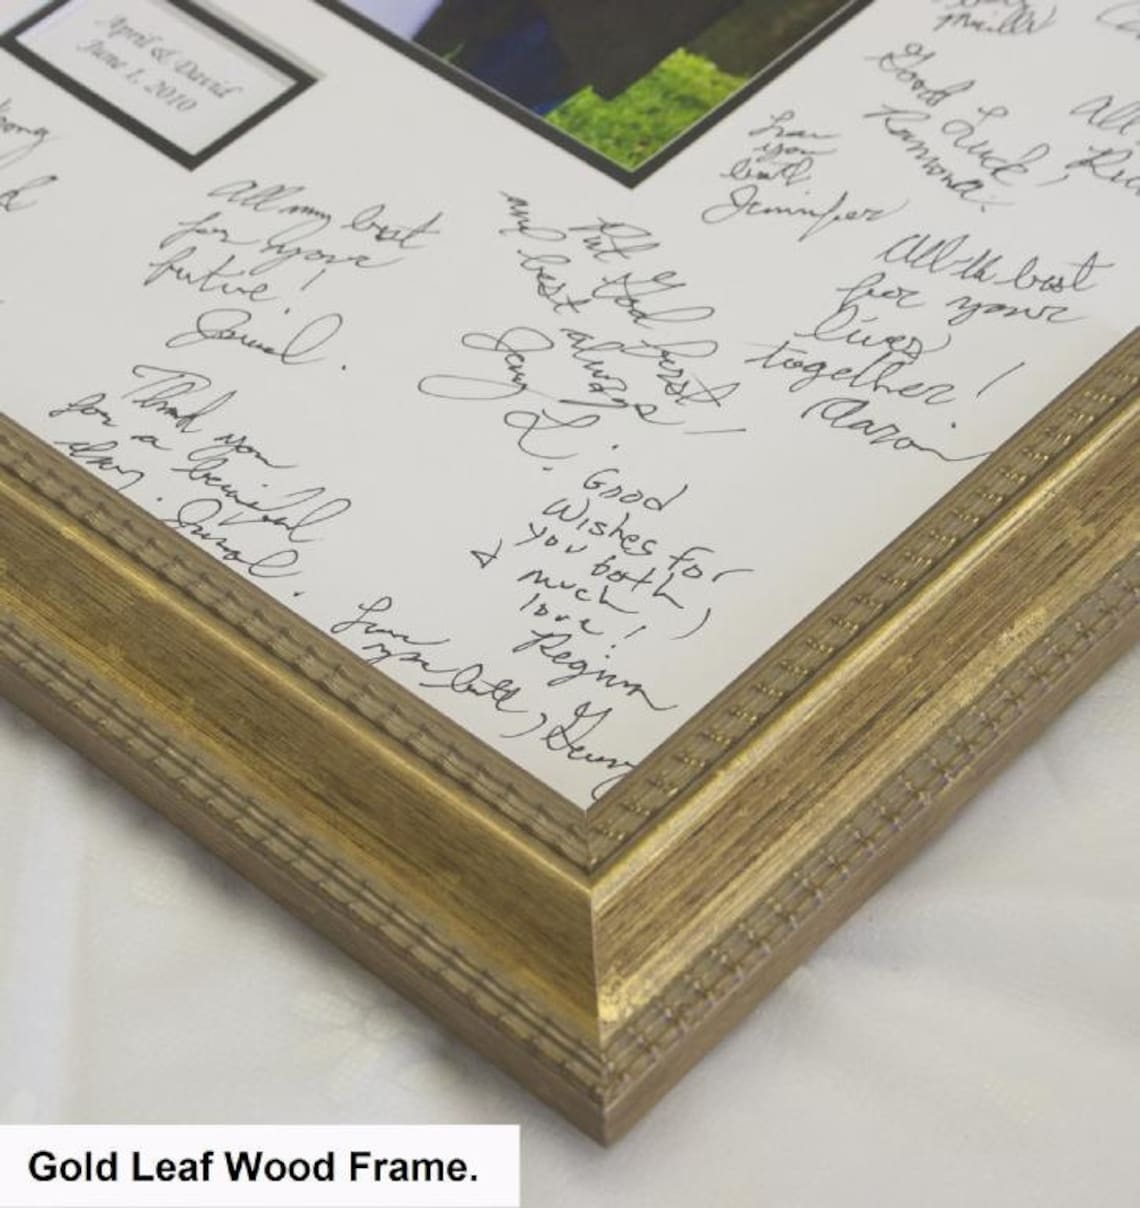 April & David
June 1, 2010
Good
Luck,
Ramona.
love
you
both.
Jennifer
All my best
for your
future!
Put God
first
and best
always!
L.
All the best
for your
lives
together!
Aaron
Thank you
for a beautiful
day.
Good
Wishes for
you both,
& much
love!
Regina
Love
you both,
Gold Leaf Wood Frame.